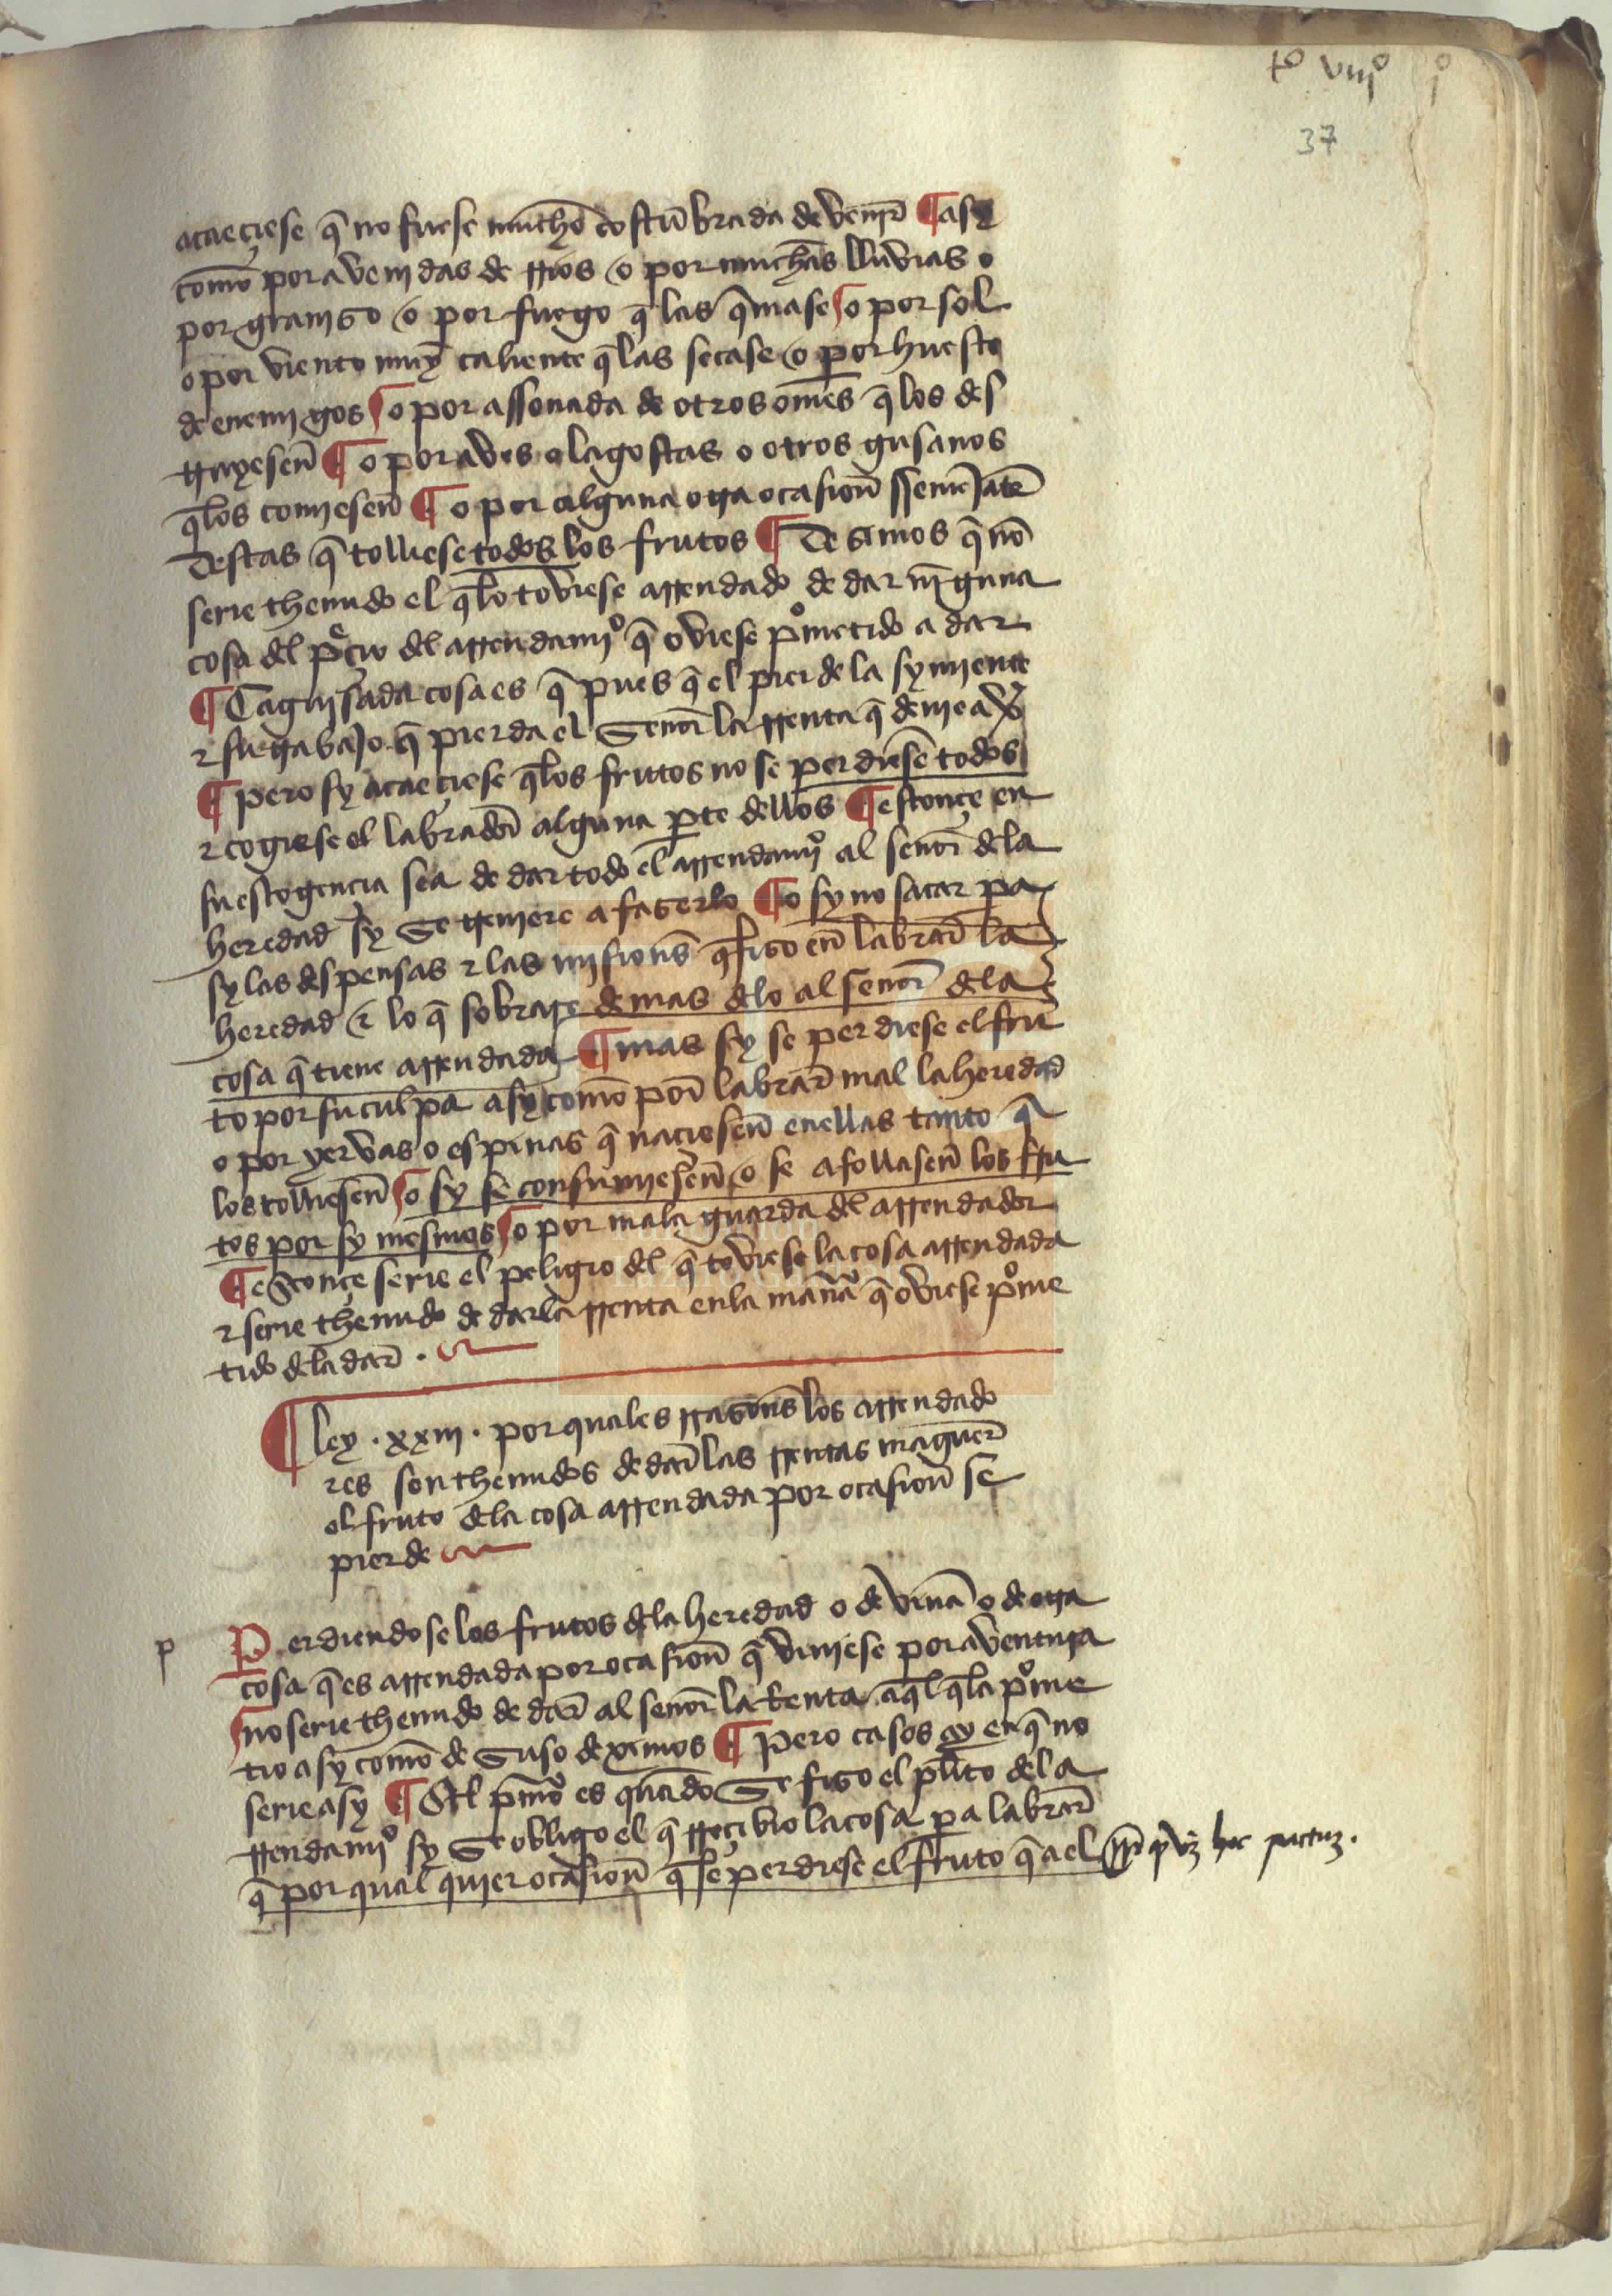 tº viijº jº
37
acaeçiese q̃ no fuese mucho costũbrada de venir ¶ asy
como por avenjdas de rrios o por muchas lluvias o
por graniso o por fuego q̃ las q̃mase o por sol
o por viento muy caliente q̃ las secase o por hueste
de enemjgos o por assonada de otros omẽs q̃ los des
truyesen ¶ o por aves o lagostas o otros gusanos
q̃ los comjesen ¶ o por alguna otra ocasion ssemejãte
destas q̃ tolliese todos los frutos ¶ Desimos q̃ nõ
serie thenudo el q̃ lo toviese arrendado de dar njnguna
cosa del p̃cio del arrendamjº q̃ oviese pºmetido a dar
¶ Ca guisada cosa es q̃ pues q̃ el pierde la symiente
τ su trabajo q̃ pierda el Senor la rrenta q̃ deuie aver
¶ pero sy acaeçiese q̃ los frutos no se perdiesẽ todos
τ cogiese el labrador alguna pte dellos ¶ estonçe en
su escogencia sea de dar todo el arrendamjº al senor dela
heredad sy Se atreujere a faserlo ¶ o sy no sacar pa
sy las despensas τ las misionẽs q̃ fiso en labrar la
heredad τ lo q̃ sobrare demas delo al senor dela
cosa q̃ tiene arrendada ¶ mas sy se perdiese el fru
to por su culpa asy como por labrar mal la heredad
o por yervas o espinas q̃ naciesen enellas tanto q̃
los tolliesen o sy se consumiesen o se afollasen los fru
tos por sy mesmos o por mala guarda del arrendador
¶ estonçe serie el peligro del q̃ toviese la cosa arrendada
τ serie thenudo de dar la rrenta enla manãa q̃ oviese pºme
tido dela dar .
¶ ley . xxiij . por quales rrasonẽs los arrendado
res son thenudos de dar las rrentas maguer
el fruto dela cosa arrendada por ocasion se
pierde
p
Perdiendose los frutos dela heredad o de vinã o de otra
cosa q̃ es arrendada por ocasion q̃ viniese por aventura
no serie thenudo de dar al senor la Renta aq̃l q̃ la pºme
tio asy como de Suso deximos ¶ pero casos ay en q̃ no
serie asy ¶ El pmºo es quãdo Se fiso el plito dela
rrendamjº sy Se obligo el q̃ rreçibio la cosa pa labrar
q̃ por qual quier ocasion q̃ se perdiese el fruto q̃ a el
hoc pactuz .